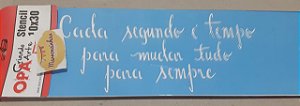 OPA
Criando Arte
Stencil
10x30
Cada segundo é tempo
para mudar tudo
para sempre